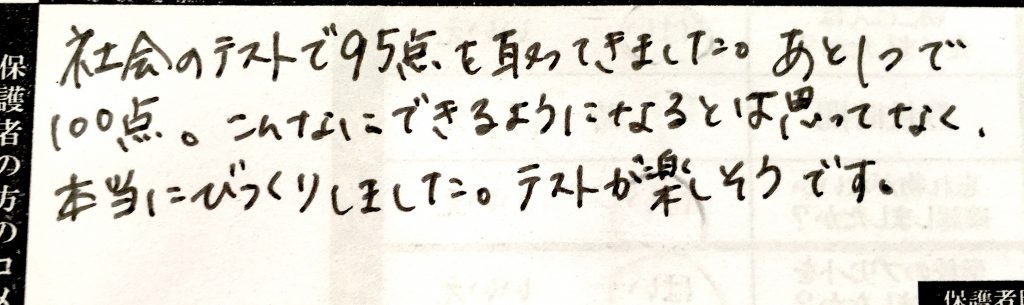 社会のテストで95点を取ってきました。あと1つで
100点。こんなにできるようになるとは思ってなく、
本当にびっくりしました。テストが楽しそうです。
保護者の方のコメ
保護者